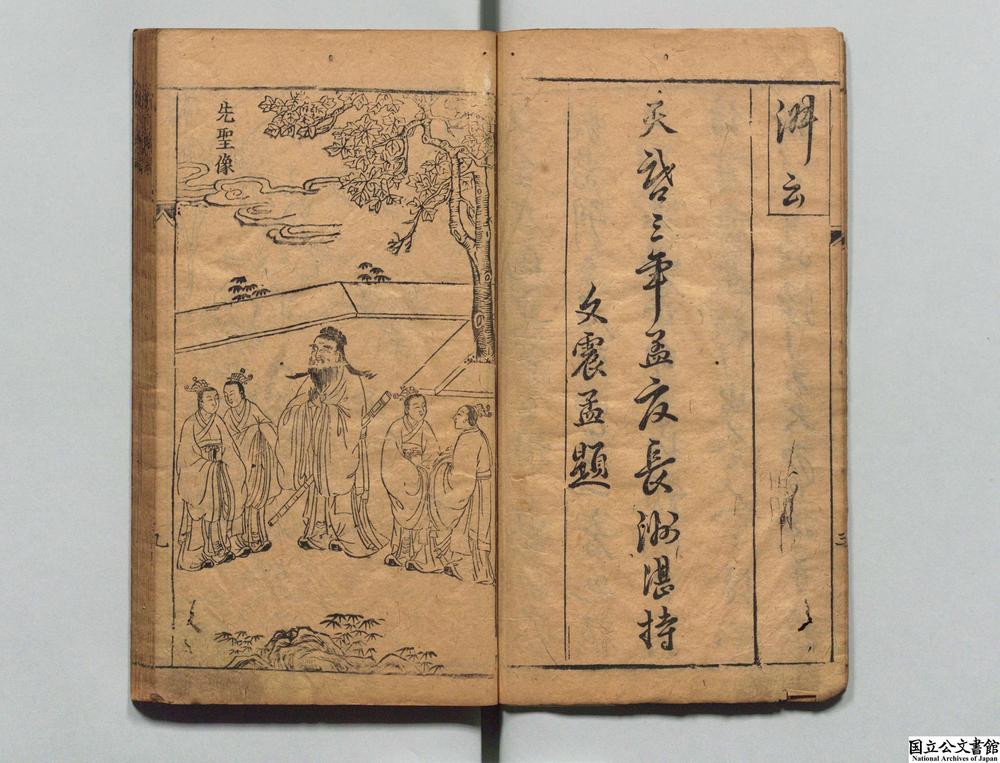 淵云
天啓三年孟夏長洲湛持
文震孟題
三
先聖像
九
国立公文書館
National Archives of Japan